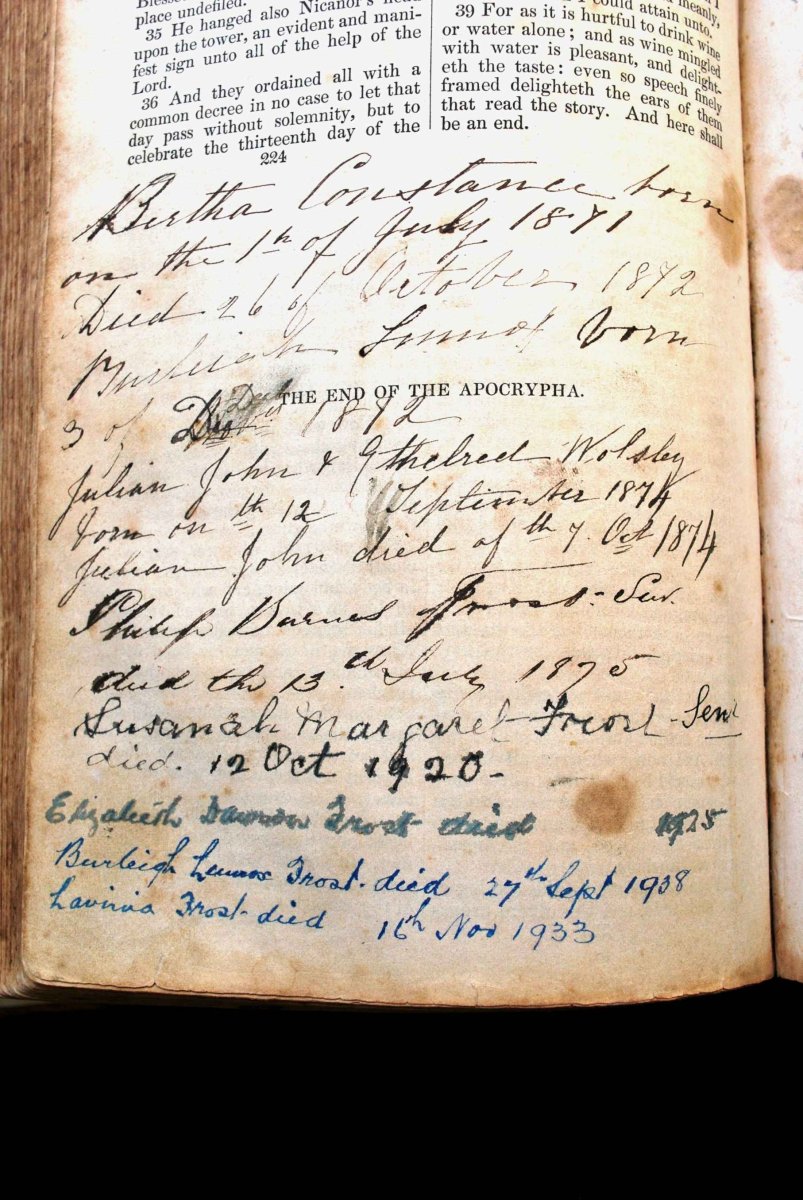 place undefiled.
35 He hanged also Nicanor's head
upon the tower, an evident and mani-
fest sign unto all of the help of the
Lord.
36 And they ordained all with a
common decree in no case to let that
day pass without solemnity, but to
celebrate the thirteenth day of the
could attain unto.
39 For as it is hurtful to drink wine
or water alone; and as wine mingled
with water is pleasant, and delight-
eth the taste: even so speech finely
framed delighteth the ears of them
that read the story. And here shall
be an end.
224
Bertha Constance born
on the 1th of July 1871
Died 26 of October 1872
Burleigh Lennox born
THE END OF THE APOCRYPHA.
3 of 1872
Julian John & Ethelred Wolsley
born on th 12 September 1874
Julian John died of th 7. Oct 1874
Philip Barnes Frost - Sen.
died the 13.th July 1875
Susanah Margaret Frost - Senr
died. 12 Oct 1920-
Elizabeth Dawson Frost died 1925
Burleigh Lennox Frost - died 27th Sept 1938
Lavinia Frost - died 16th Nov 1933